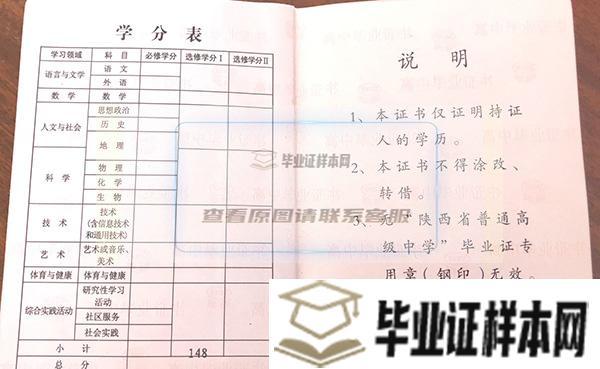 学分表
学习领域 科目 必修学分 选修学分Ⅰ 选修学分Ⅱ
语言与文学 语文
外语
数学 数学
人文与社会 思想政治
历史
地理
科学 物理
化学
生物
技术 技术
(含信息技术
和通用技术)
艺术 艺术或音乐、
美术
体育与健康 体育与健康
综合实践活动 研究性学习
活动
社区服务
社会实践
小计 148
总分
说明
1、本证书仅证明持证
人的学历。
2、本证书不得涂改、
转借。
3、无“陕西省普通高
级中学”毕业证专
用章(钢印)无效。
毕业证样本网
查看原图请联系客服
毕业证样本网